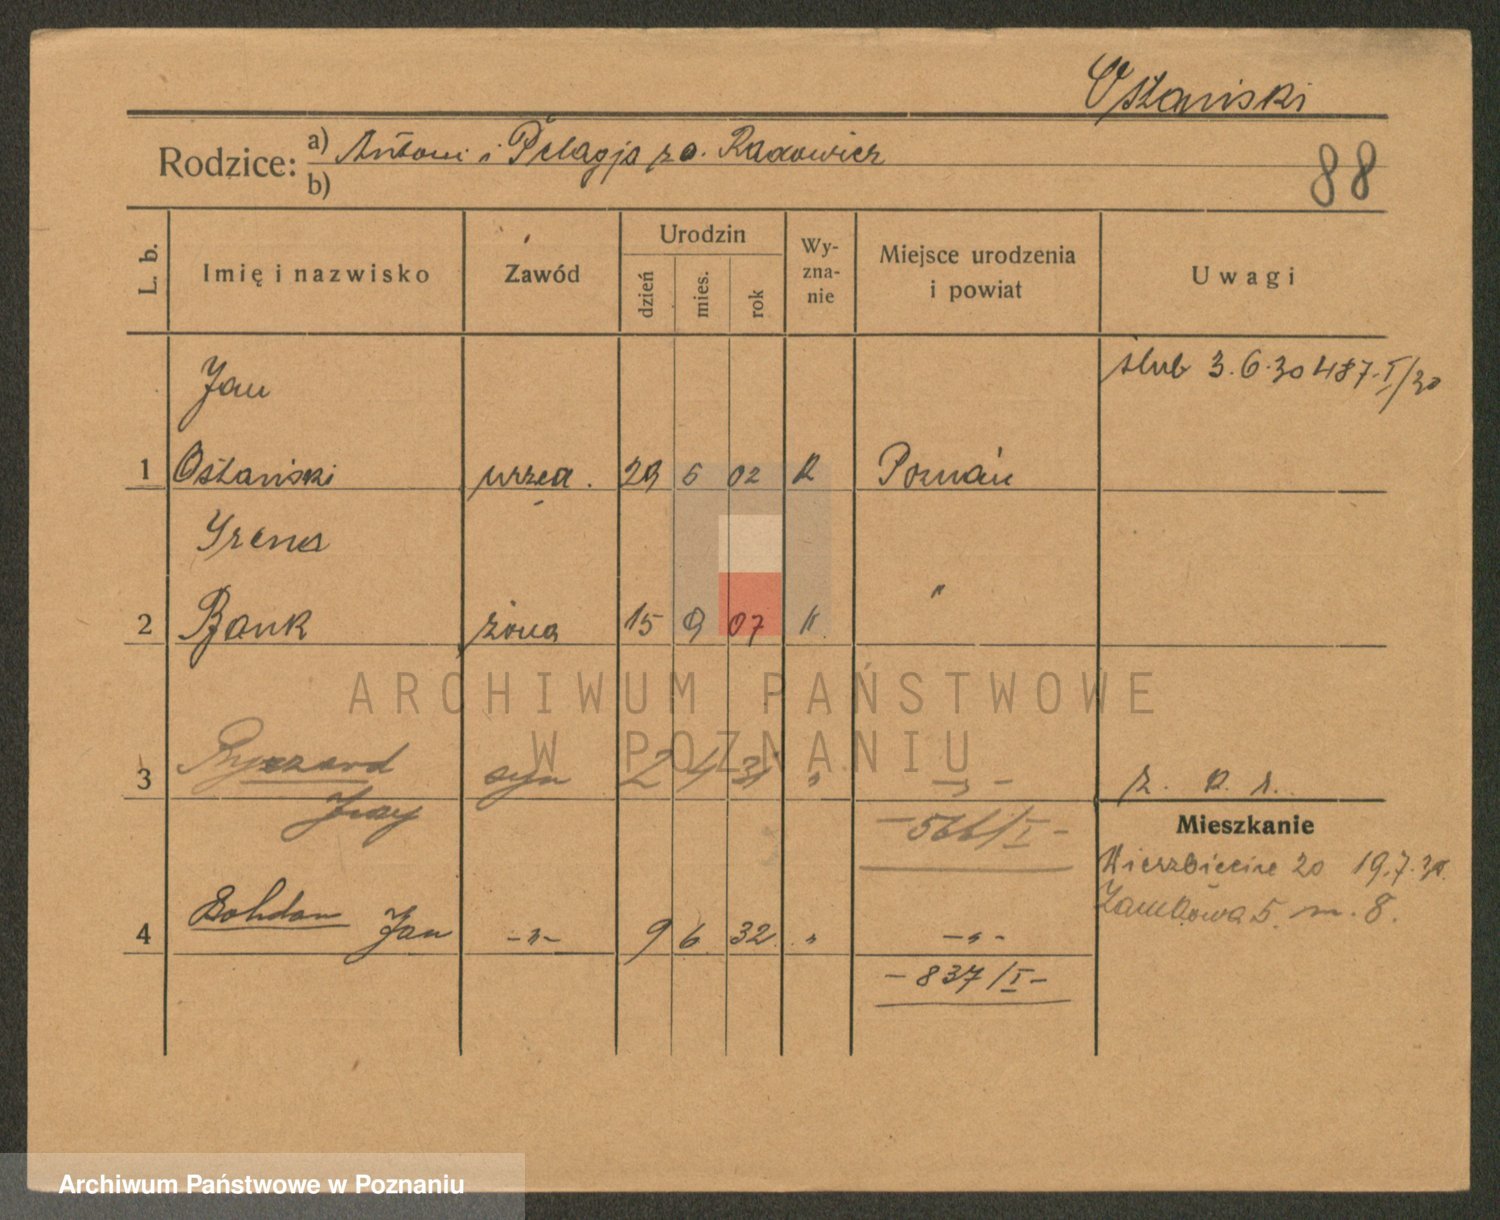 Osłański
Rodzice: a) Antoni i Pelagja zd. Radowicz
b)
88
L. b. Imię i nazwisko Zawód Urodzin dzień mies. rok Wy-zna-nie Miejsce urodzenia i powiat Uwagi
Jan ślub 3.6.30 487.I/30
1 Osłański urzęd. 29 5 02 R Poznań
Irena
2 Bank żona 15 9 07 " "
3 Ryszard syn 2 4 31 " -"-
Jerzy -566/I-
Mieszkanie
Wierzbięcice 20 19.7.30.
Zamkowa 5 m. 8.
4 Bohdan Jan -"- 9 6 32 " -"-
-837/I-
ARCHIWUM PAŃSTWOWE
W POZNANIU
Archiwum Państwowe w Poznaniu